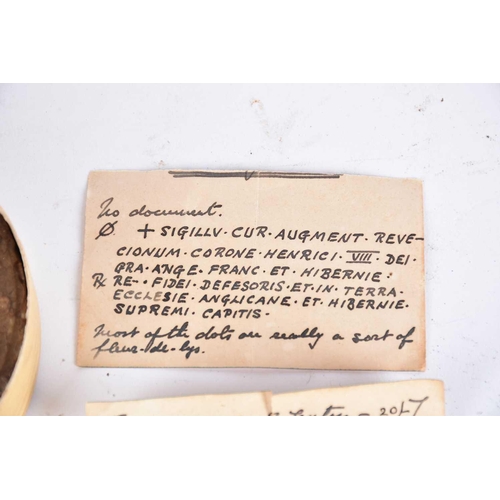 No document.
Ø + SIGILLV · CUR · AUGMENT · REVE-
CIONUM · CORONE · HENRICI · VIII · DEI ·
GRA · ANGE · FRANC · ET · HIBERNIE :
RE- · FIDEI · DEFESORIS · ET · IN · TERRA ·
ECCLESIE · ANGLICANE · ET · HIBERNIE ·
SUPREMI · CAPITIS ·
Most of the dots are really a sort of
fleur-de-lys.